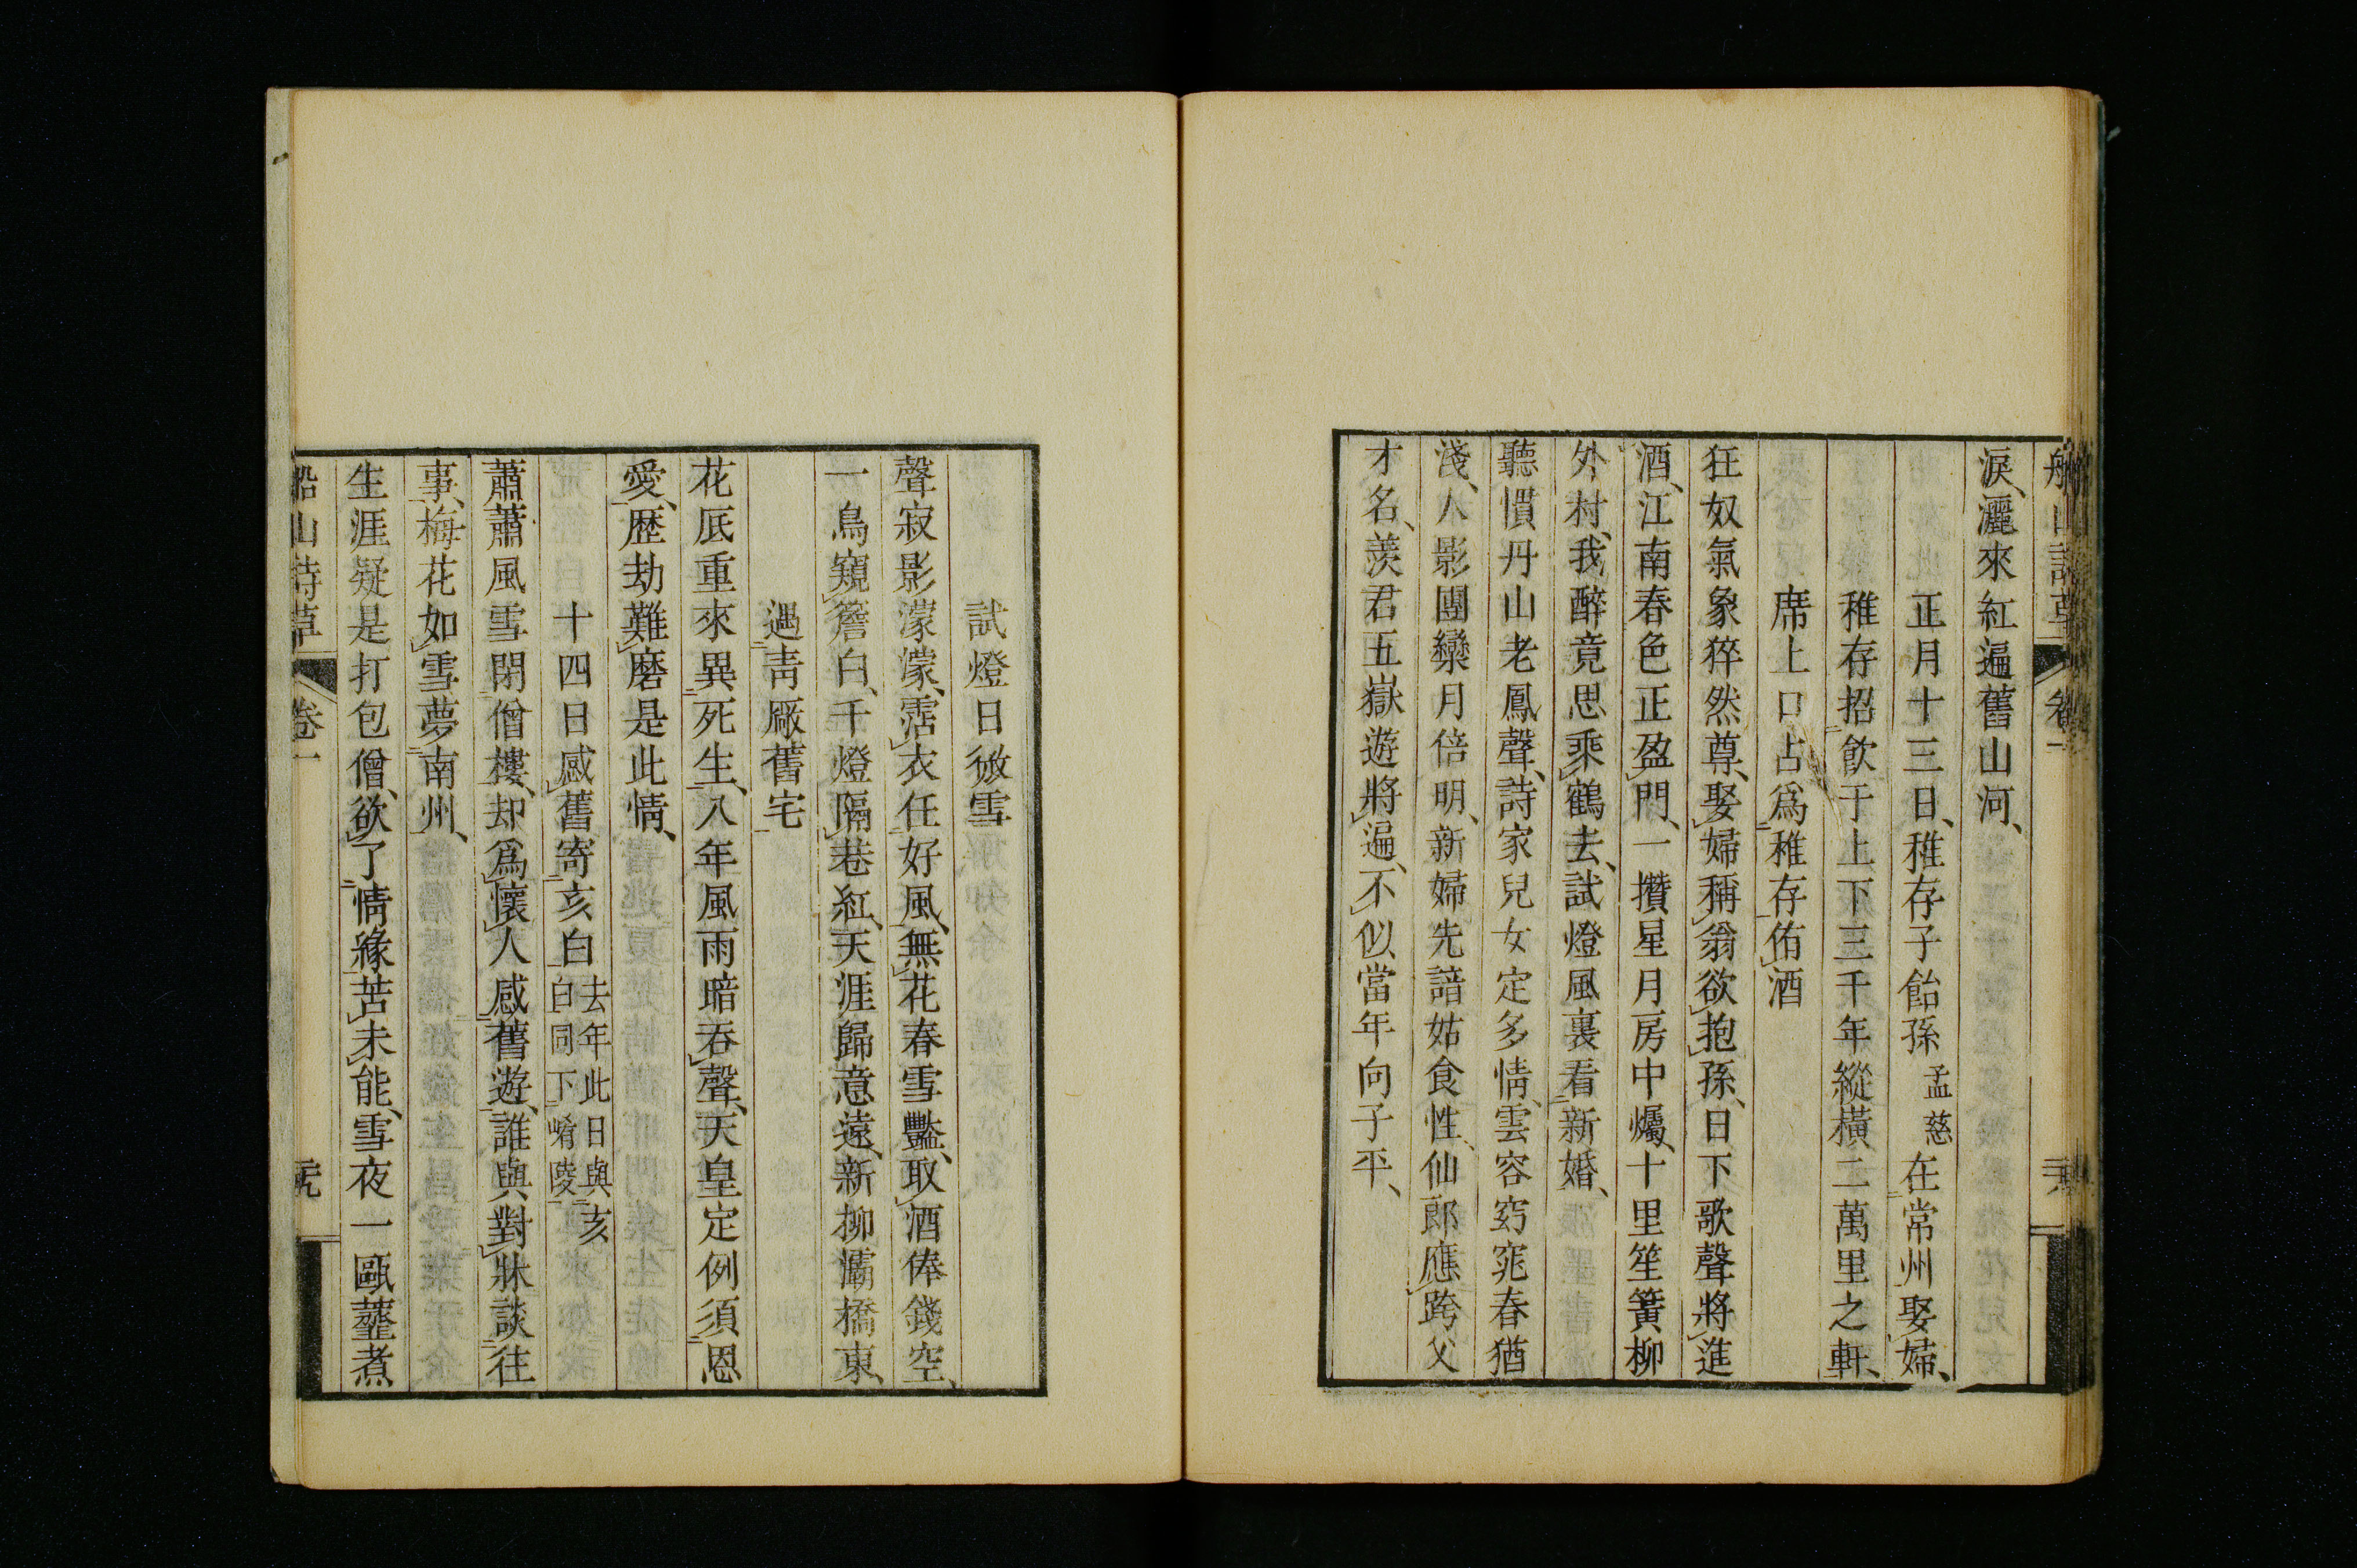 船山詩草　卷一
淚、灑來紅遍舊山河、
正月十三日、稚存子飴孫孟慈在常州娶婦、
稚存招飮于上下三千年縱橫二萬里之軒、
席上口占爲稚存侑酒
狂奴氣象猝然尊、娶婦稱翁欲抱孫、日下歌聲將進
酒、江南春色正盈門、一攢星月房中爥、十里笙簧柳
外村、我醉竟思乘鶴去、試燈風裏看新婚、
聽慣丹山老鳳聲、詩家兒女定多情、雲容窈窕春猶
淺、人影團欒月倍明、新婦先諳姑食性、仙郎應跨父
才名、羨君五嶽遊將遍、不似當年向子平、
試燈日微雪
聲寂影濛濛、霑衣任好風、無花春雪豔、取酒俸錢空、
一鳥窺簷白、千燈隔巷紅、天涯歸意遠、新柳灞橋東、
過靑厰舊宅
花底重來異死生、入年風雨暗吞聲、天皇定例須恩
愛、歴劫難磨是此情、
十四日感舊寄亥白去年此日與亥白同下崤陵
蕭蕭風雪閉僧樓、却爲懷人感舊遊、誰與對牀談往
事、梅花如雪夢南州、
生涯疑是打包僧、欲了情緣苦未能、雪夜一甌虀煮
船山詩草　卷一　元